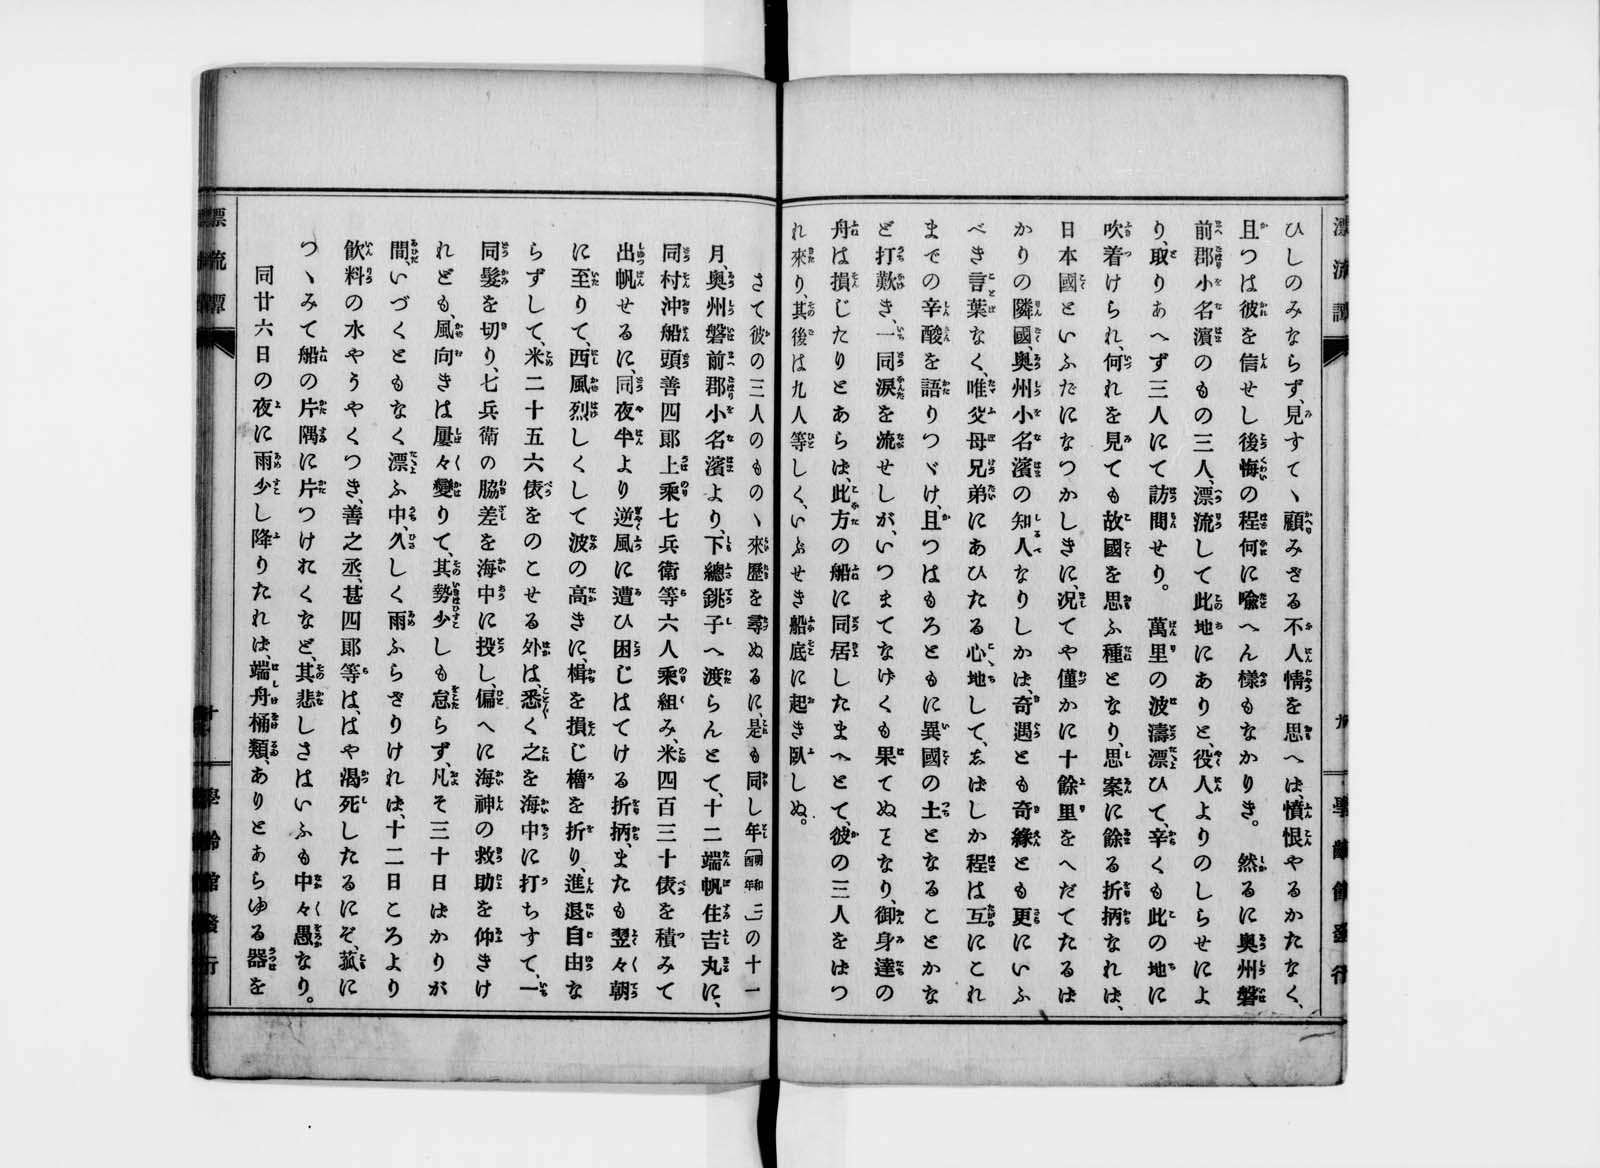 漂流譚
九
學齡館發行
ひしのみならず、見すてゝ顧みざる不人情を思へは、憤恨やるかたなく、
且つは彼を信せし後悔の程何に喩へん樣もなかりき。然るに奥州磐
前郡小名濱のもの三人、漂流して此地にありと、役人よりのしらせによ
り、取りあへず三人にて訪問せり。萬里の波濤漂ひて、辛くも此の地に
吹着けられ、何れを見ても故國を思ふ種となり、思案に餘る折柄なれは、
日本國といふだになつかしきに、況てや僅かに十餘里をへだてたるは
かりの隣國、奥州小名濱の知人なりしかは、奇遇とも奇緣とも更にいふ
べき言葉なく、唯父母兄弟にあひたる心地して、しはしか程は互にこれ
までの辛酸を語りつゞけ、且つはもろともに異國の土となることかな
ど打歎き、一同淚を流せしが、いつまてなげくも果てぬことなり、御身達の
舟は損じたりとあらは、此方の船に同居したまへとて、彼の三人をはつ
れ來り、其後は九人等しく、いぶせき船底に起き臥しぬ。
さて彼の三人のものゝ來歷を尋ぬるに、是も同し年〔明和二酉年〕の十一
月、奥州磐前郡小名濱より、下總銚子へ渡らんとて、十二端帆住吉丸に、
同村沖船頭善四郎上乘七兵衛等六人乘組み、米四百三十俵を積みて
出帆せるに、同夜半より逆風に遭ひ困じはてける折柄、またも翌々朝
に至りて、西風烈しくして波の高きに、楫を損じ櫓を折り、進退自由な
らずして、米二十五六俵をのこせる外は、悉く之を海中に打ちすて、一
同髮を切り、七兵衛の脇差を海中に投し、偏へに海神の救助を仰きけ
れども、風向きは屢々變りて、其勢少しも怠らず、凡そ三十日はかりが
間、いづくともなく漂ふ中、久しく雨ふらざりけれは、十二日ころより
飮料の水やうやくつき、善之丞、甚四郎等は、はや渴死したるにぞ、菰に
つゝみて船の片隅に片つけれくなど、其悲しさはいふも中々愚なり。
同廿六日の夜に雨少し降りたれは、端舟桶類、ありとあらゆる器を
漂流譚
十
學齡館發行